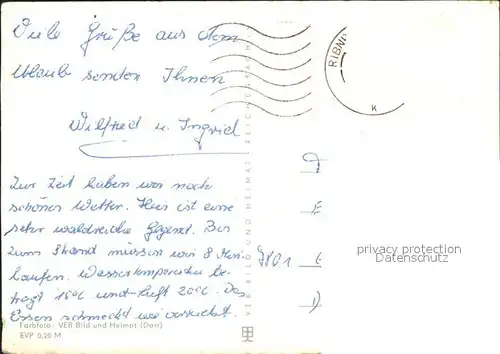 Viele Grüße aus dem
Urlaub senden Ihnen
Wilfried u. Ingrid
Zur Zeit haben wir noch
schönes Wetter. Hier ist eine
sehr waldreiche Gegend. Bis
zum Strand müssen wir 8 Min.
laufen. Wassertemperatur be-
trägt 18°C und Luft 20°C. Das
Essen schmeckt wie
Farbfoto: VEB Bild und Heimat (Darr)
EVP 0,20 M
VEB BILD UND HEIMAT REICHENBACH
RIBN
K
7801
privacy protection
Datenschutz